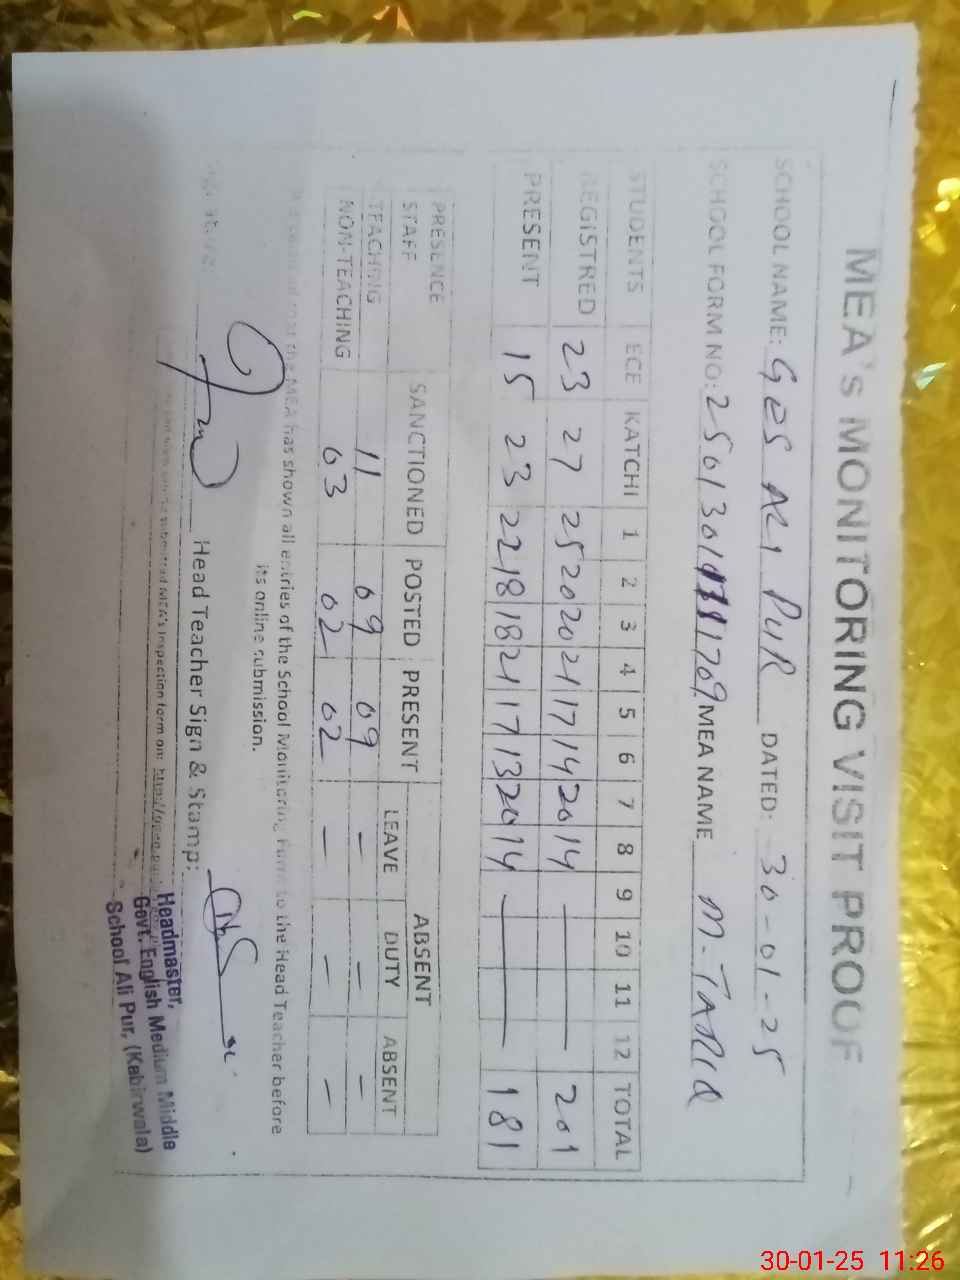 MEA's MONITORING VISIT PROOF
SCHOOL NAME: GES ALI PUR DATED: 30-01-25
SCHOOL FORM NO: MEA NAME M. TARIQ
STUDENTS ECE KATCHI 1 2 3 4 5 6 7 8 9 10 11 12 TOTAL
REGISTRED 23 27 25 20 20 21 17 14 20 14 — 201
PRESENT 15 23 22 18 18 21 17 13 20 14 — 181
PRESENCE STAFF SANCTIONED POSTED PRESENT ABSENT
LEAVE DUTY ABSENT
TEACHING 11 09 09 – – –
NON-TEACHING 03 02 02 – – –
that the MEA has shown all entries of the School Monitoring Form to the Head Teacher before
its online submission.
Head Teacher Sign & Stamp:
submitted MEA's Inspection form on:
Headmaster,
Govt. English Medium Middle
School Ali Pur, (Kabirwala)
30-01-25 11:26